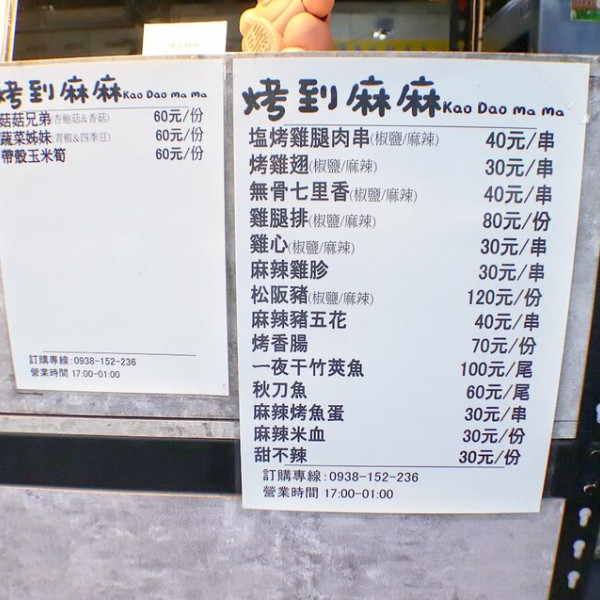 烤到麻麻Kao Dao ma ma
菇菇兄弟(杏鮑菇&香菇) 60元/份
蔬菜姊妹(青椒&四季豆) 60元/份
帶殼玉米筍 60元/份
訂購專線:0938-152-236
營業時間 17:00-01:00
烤到麻麻Kao Dao ma ma
塩烤雞腿肉串(椒鹽/麻辣) 40元/串
烤雞翅(椒鹽/麻辣) 30元/串
無骨七里香(椒鹽/麻辣) 40元/串
雞腿排(椒鹽/麻辣) 80元/份
雞心(椒鹽/麻辣) 30元/串
麻辣雞胗 30元/串
松阪豬(椒鹽/麻辣) 120元/份
麻辣豬五花 40元/串
烤香腸 70元/份
一夜干竹莢魚 100元/尾
秋刀魚 60元/尾
麻辣烤魚蛋 30元/串
麻辣米血 30元/份
甜不辣 30元/份
訂購專線:0938-152-236
營業時間 17:00-01:00